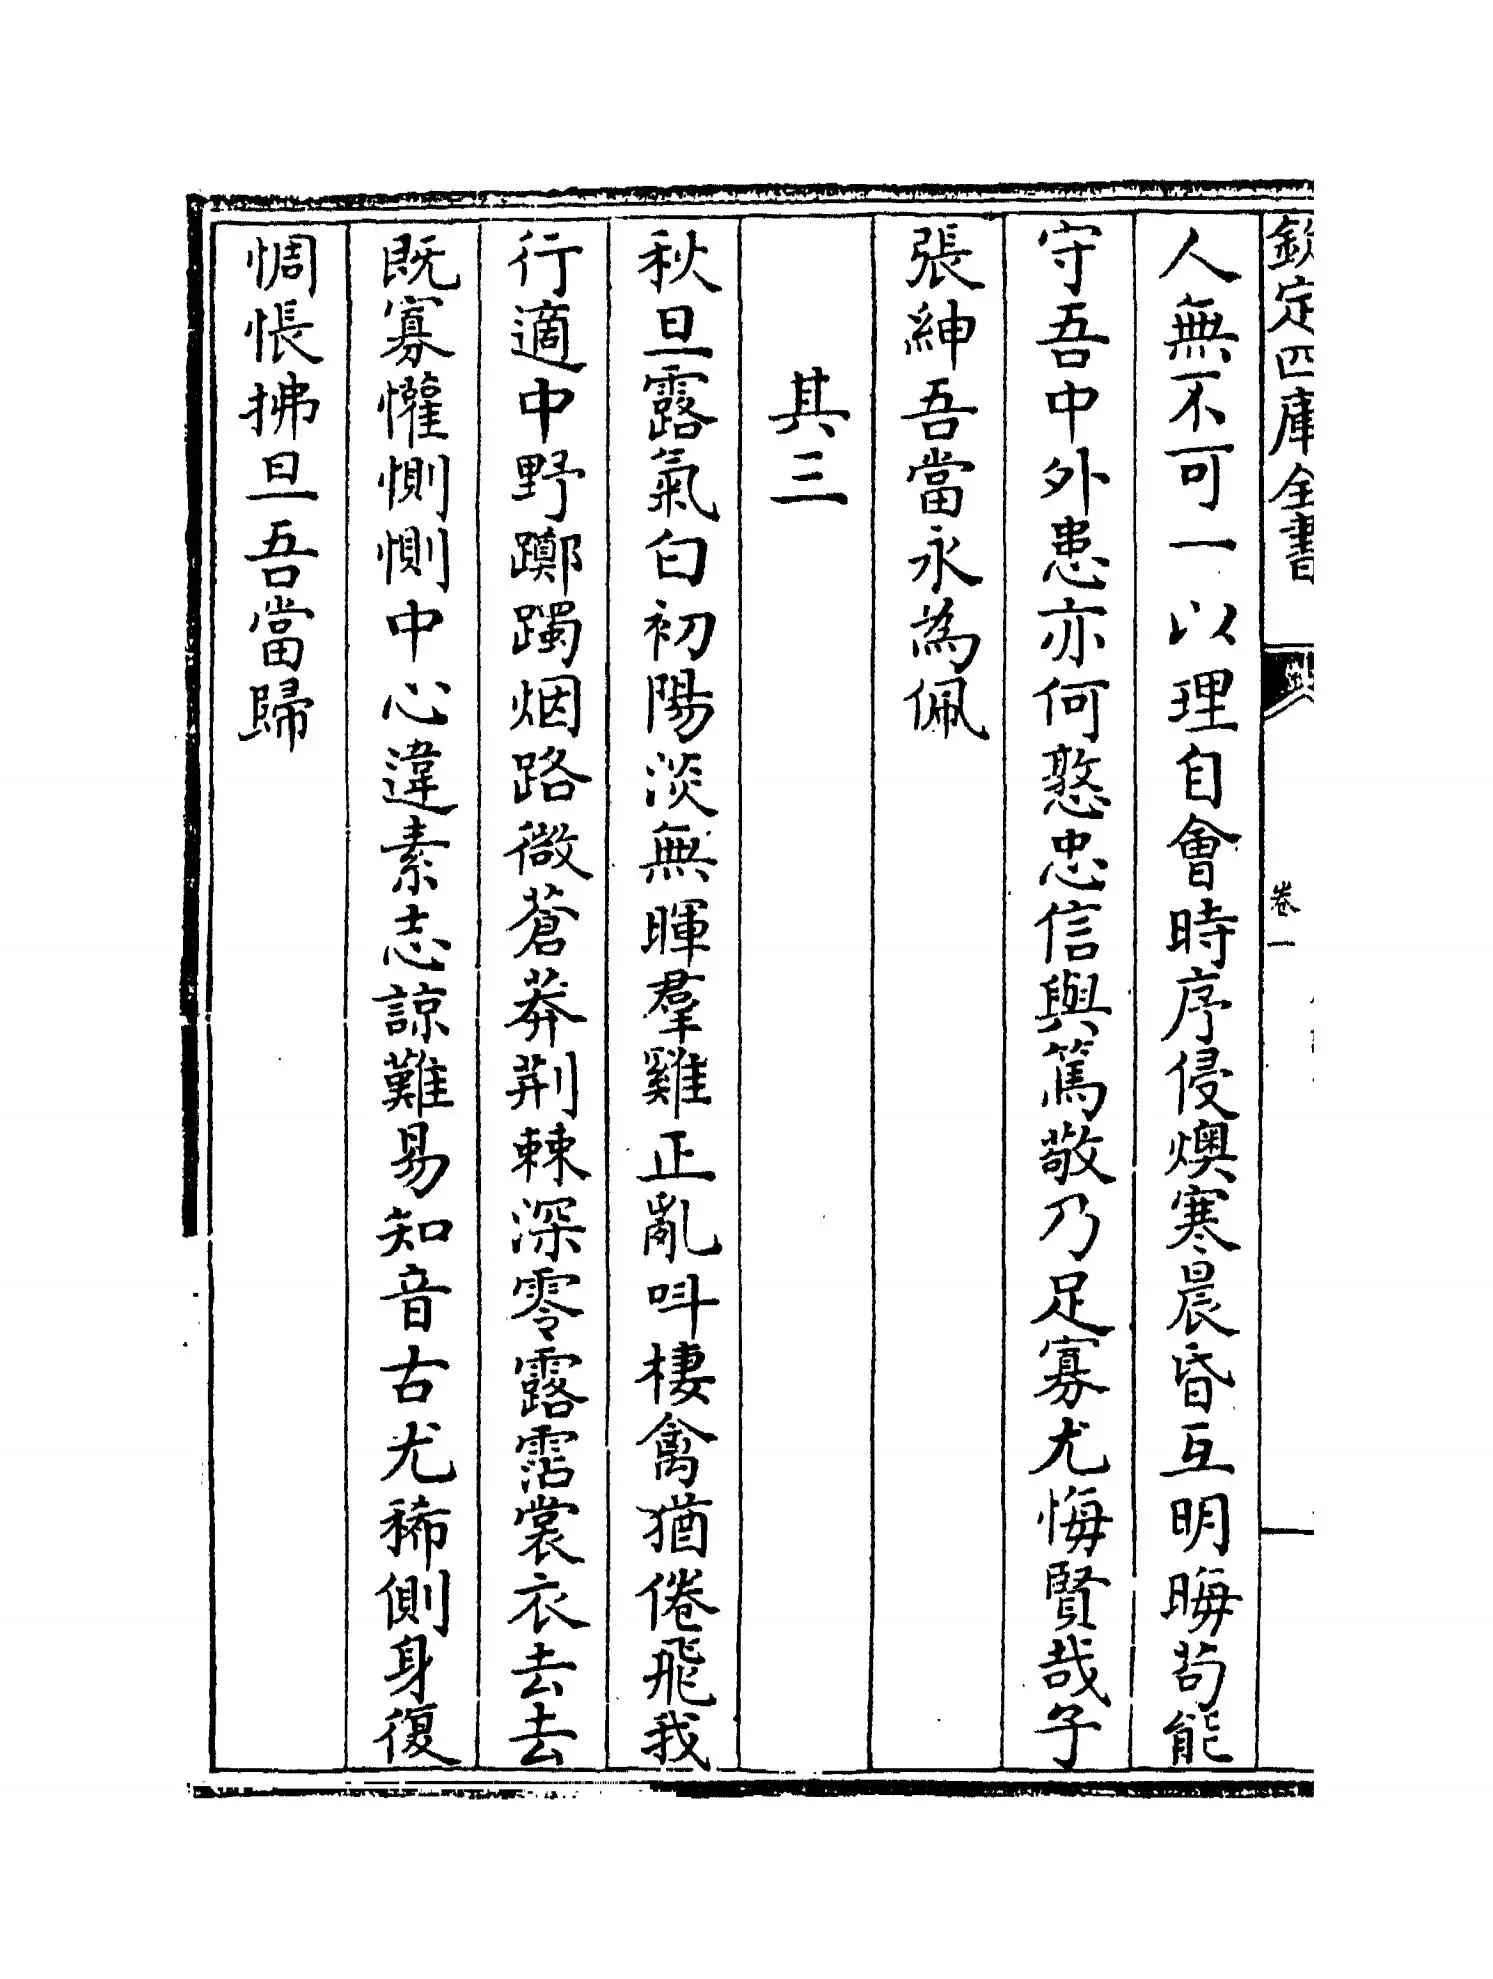 欽定四庫全書
卷一
人無不可一以理自會時序侵燠寒晨昏互明晦茍能
守吾中外患亦何憝忠信與篤敬乃足寡尤悔賢哉子
張紳吾當永為佩
其三
秋旦露氣白初陽淡無暉羣雞正亂呌棲禽猶倦飛我
行適中野躑躅烟路微蒼莽荆棘深零露霑裳衣去去
既寡懽惻惻中心違素志諒難易知音古尤稀側身復
惆悵拂旦吾當歸